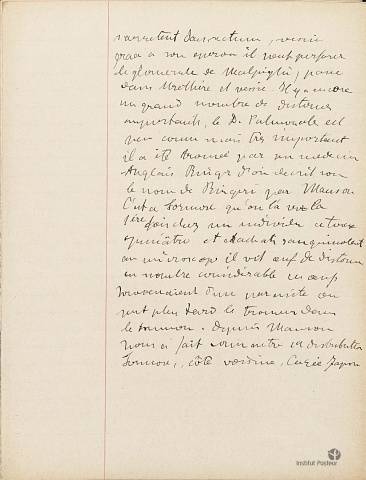 s'arretent dans rectum, vessie
grace a son eperon il peut perforer
le glomerule de Malpighi, passe
dans Urethère et vessie. Il y a encore
un grand nombre de distomes
importants, le D. Pulmonale est
peu connu mais très important
il a été trouvé par un medecin
Anglais Ringer d'où decrit sous
le nom de Ringeri par Manson
C'est a Formose qu'on l'a vu la
1ère fois chez un individu
et crachats sanguinolents
au microscope il vit œufs de distome
en nombre considérable ces œufs
provenaient d'un parasite on
put plus tard le trouver dans
le poumon. Depuis Manson
nous a fait connaitre sa distribution
Formose, côté voisine, Corée Japon
Institut Pasteur